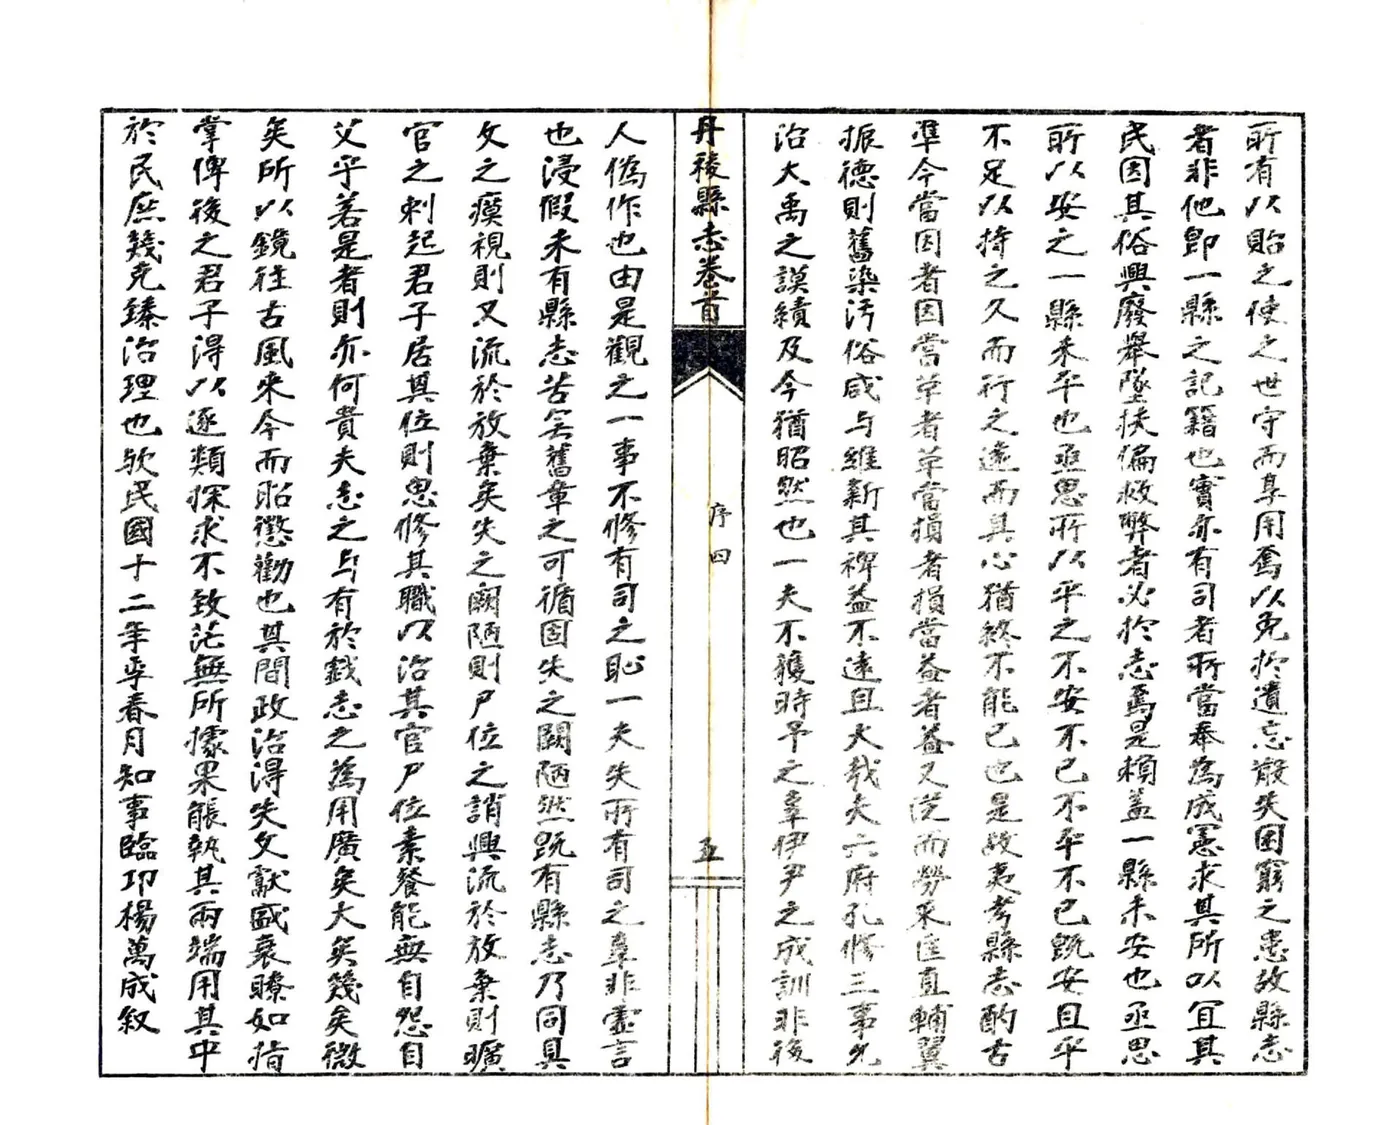 所有以貽之使之世守而某用奮以免於遺忘散失困窮之患故縣志
者非他卽一縣之記籍也實亦有司者所當奉為成憲求其所以宜其
民因其俗興廢舉墜扶偏救弊者必於志焉是頼蓋一縣未安也亟思
所以安之一縣未平也亟思所以平之不安不已不平不已旣安且平
不足以持之久而行之遠而其心猶終不能已也是故夷考縣志酌古
準今當因者因當革者革當損者損當益者益又従而勞來匡直輔翼
振德則舊染污俗咸与維新其裨益不遠且大哉夫六府孔修三事允
治大禹之謨績及今猶昭然也一夫不獲時予之辜伊尹之成訓非後
丹稜縣志卷首
序四
五
人僞作也由是觀之一事不修有司之恥一夫失所有司之辜非虛言
也浸假未有縣志苦無舊章之可循固失之闕陋然旣有縣志乃同具
文之瘼視則又流於放棄矣失之闕陋則尸位之誚興流於放棄則曠
官之刺起君子居其位則思修其職以治其官尸位素餐能無自怨自
艾乎若是者則亦何貴夫志之与有於戲志之為用廣矣大矣幾矣微
矣所以鏡往古風來今而昭懲勸也其間政治得失文獻盛衰瞭如指
掌俾後之君子得以逐類探求不致茫無所據果能執其兩端用其中
於民庶幾克臻治理也歟民國十二年季春月知事臨邛楊萬成敘